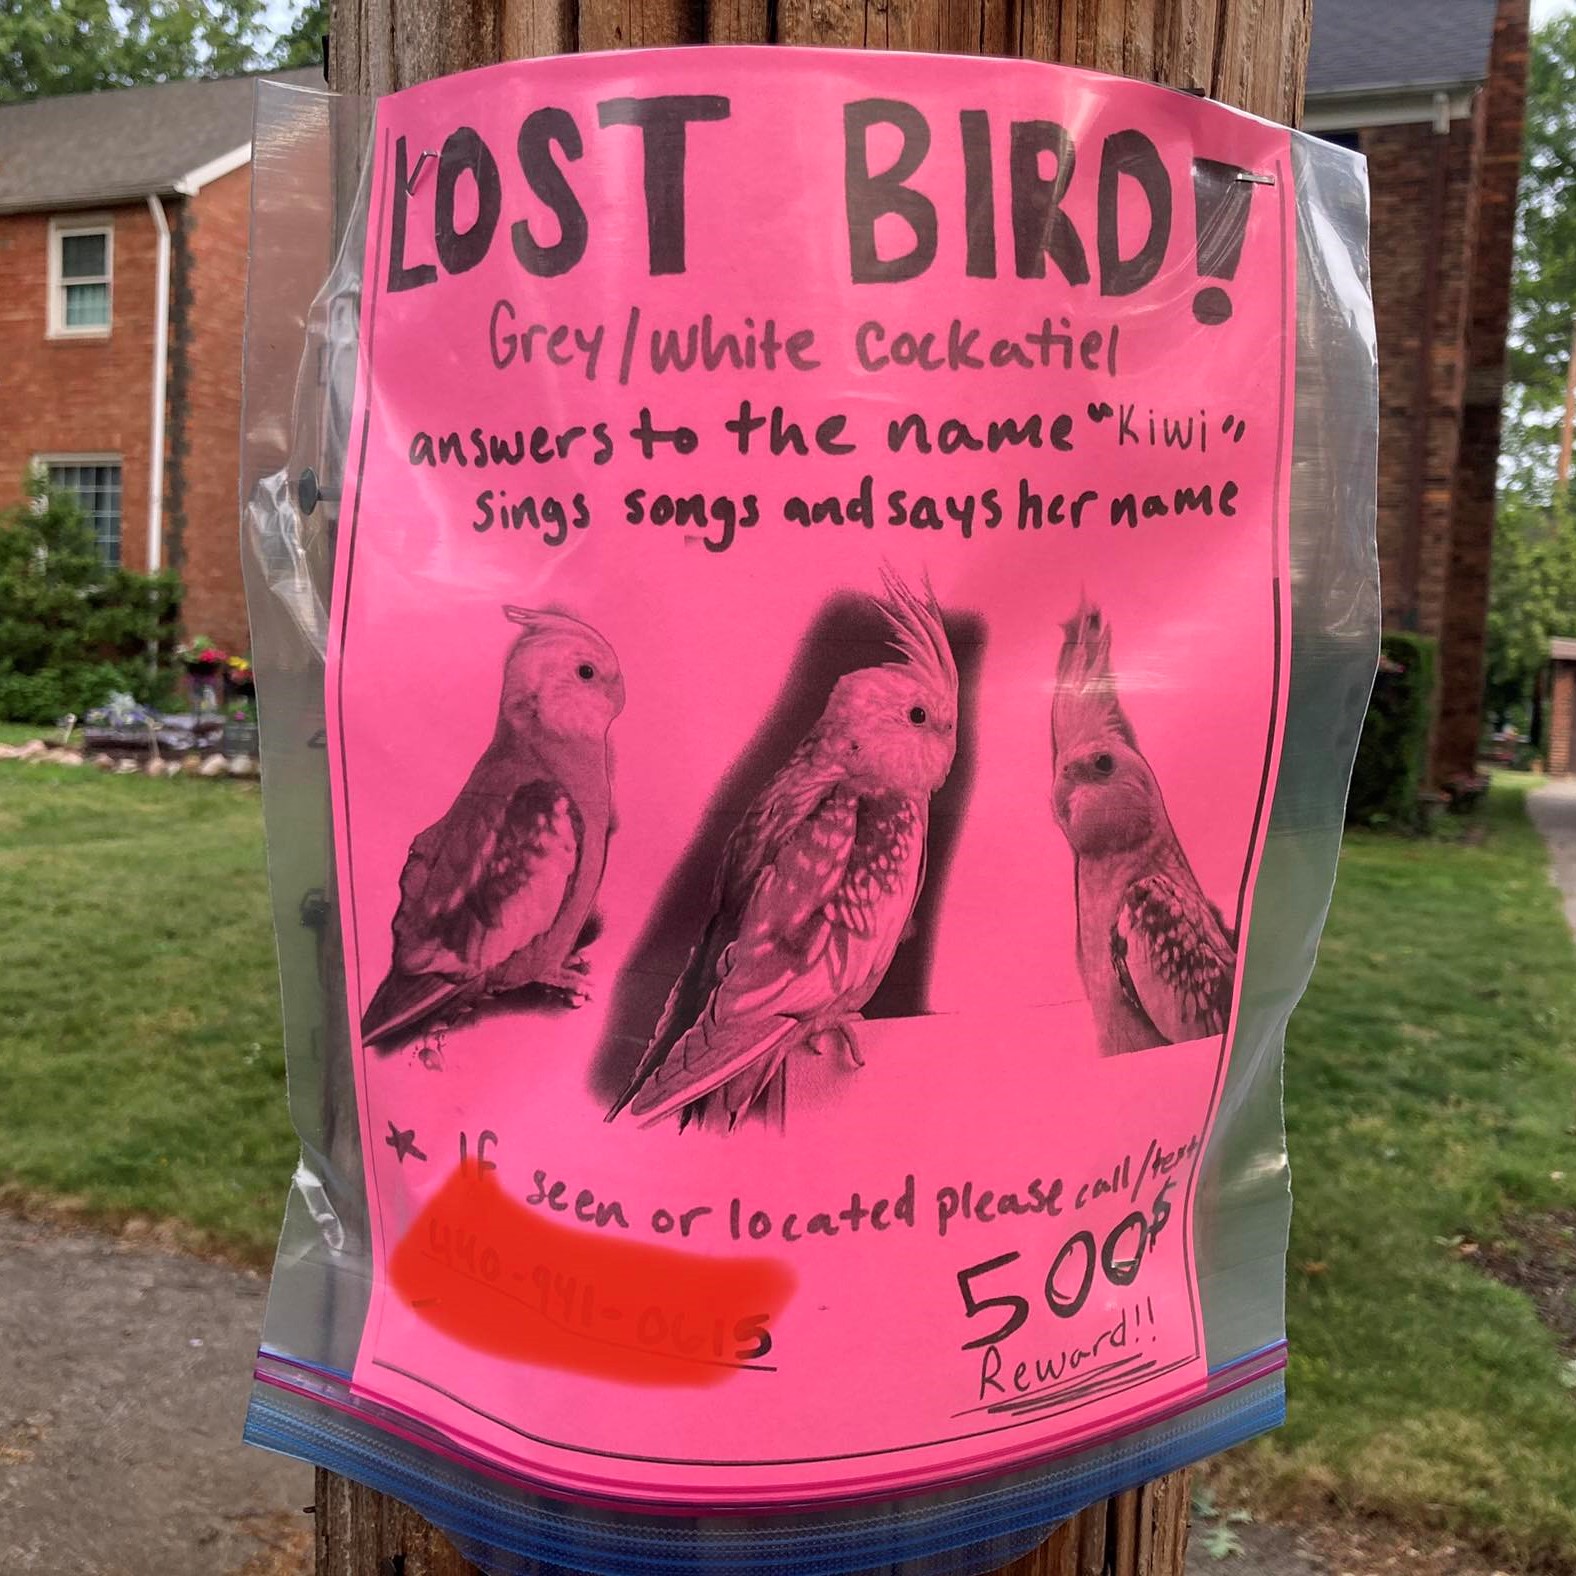 LOST BIRD!
Grey/white Cockatiel
answers to the name "Kiwi"
sings songs and says her name
★ If seen or located please call/text
500$
Reward!!